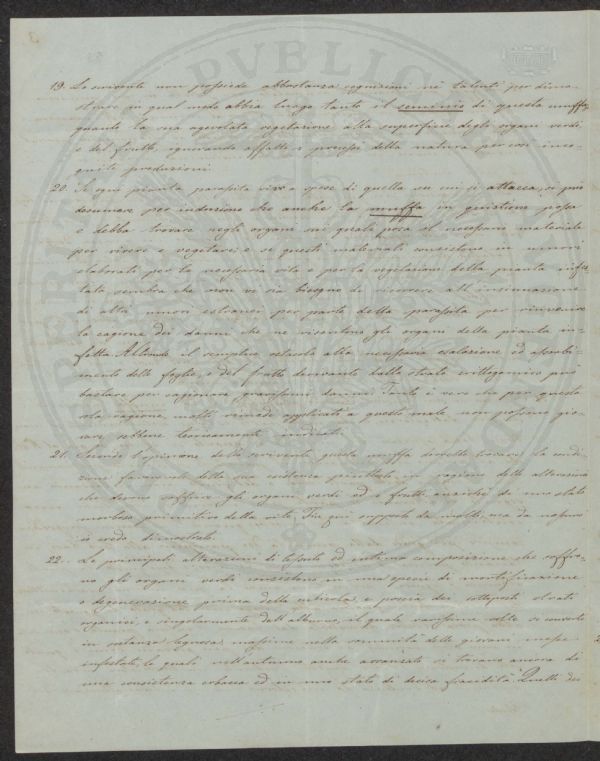 19. Lo scrivente non possiede abbastanza cognizioni nè talenti per dimo-
strare in qual modo abbia luogo tanto il seminio di questa muffa,
quanto la sua agevolata vegetazione alla superficie degli organi verdi
e del frutto, ignorando affatto i processi della natura per così
produzioni.
20. Se ogni pianta parassita vive a spese di quella su cui si attacca, si può
desumere per induzione che anche la muffa in quistione possa
e debba trovare negli organi sui quali posa il necessario materiale
per vivere e vegetare: e se questi materiali consistono in umori
elaborati per la necessaria vita e per la vegetazione della pianta infes-
tata sembra che non vi sia bisogno di ricorrere all'insinuazione
di altri umori estranei per parte della parassita per rinvenire
la cagione dei danni che ne risentono gli organi della pianta in-
fetta. Altronde il semplice ostacolo alla necessaria esalazione ed assorbi-
mento delle foglie, e del frutto derivante dallo strato crittogamico può
bastare per cagionare gravissimi danni. Tanto è vero che per questa
sola ragione molti rimedi applicati a questo male non possono gio-
vare sebbene teoricamente indicati.
21. Secondo l'opinione dello scrivente questa muffa dovrebbe trovare le condi-
zioni favorevoli della sua esistenza piuttosto in ragione delle alterazioni
che devono soffrire gli organi verdi ed i frutti, anziché da uno stato
morboso primitivo della vite, fin qui supposto da molti, ma da nessuno
io credo dimostrato.
22. Le principali alterazioni di tessuto ed intima composizione che soffro-
no gli organi verdi consistono in una specie di mortificazione
o degenerazione prima della cuticola, e poscia dei sottoposti strati
organici, e singolarmente dell'alburno, il quale rarissime volte si converte
in sostanza legnosa massime nella sommità delle giovani messe
infestate, le quali nell'autunno anche avanzato si trovano ancora di
una consistenza erbacea ed in uno stato di decisa fracidità. Quelli dei